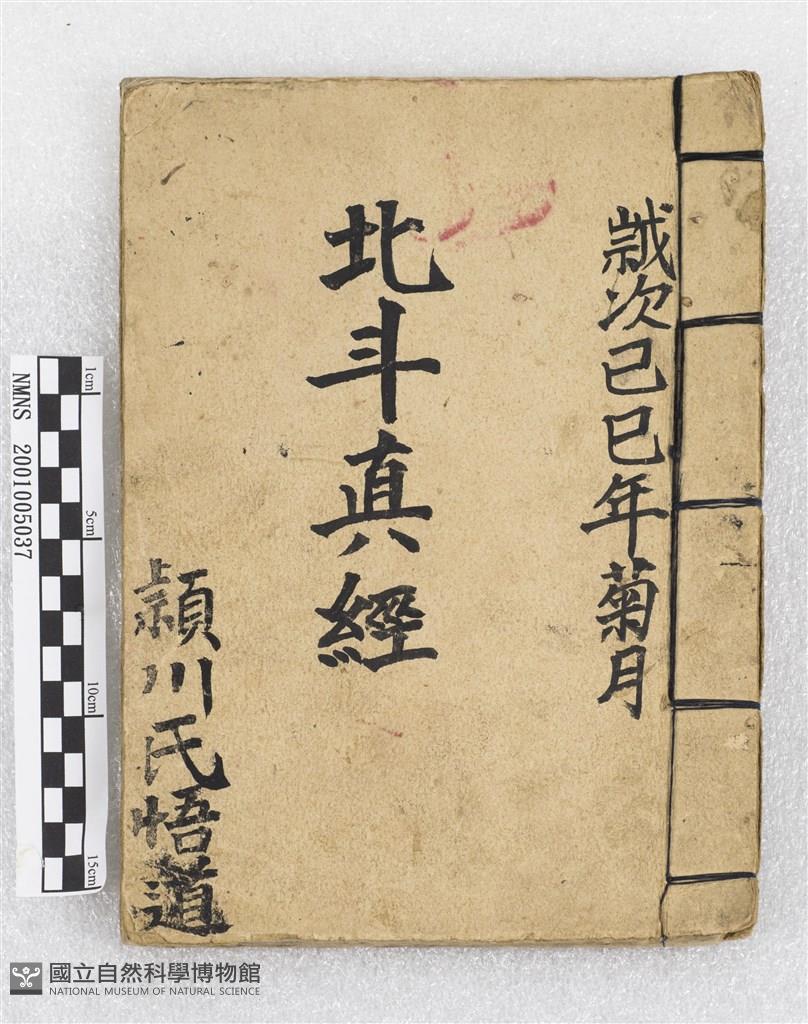 歲次己巳年菊月
北斗真經
頴川氏悟道
1cm
5cm
10cm
15cm
NMNS 2001005037
國立自然科學博物館
NATIONAL MUSEUM OF NATURAL SCIENCE